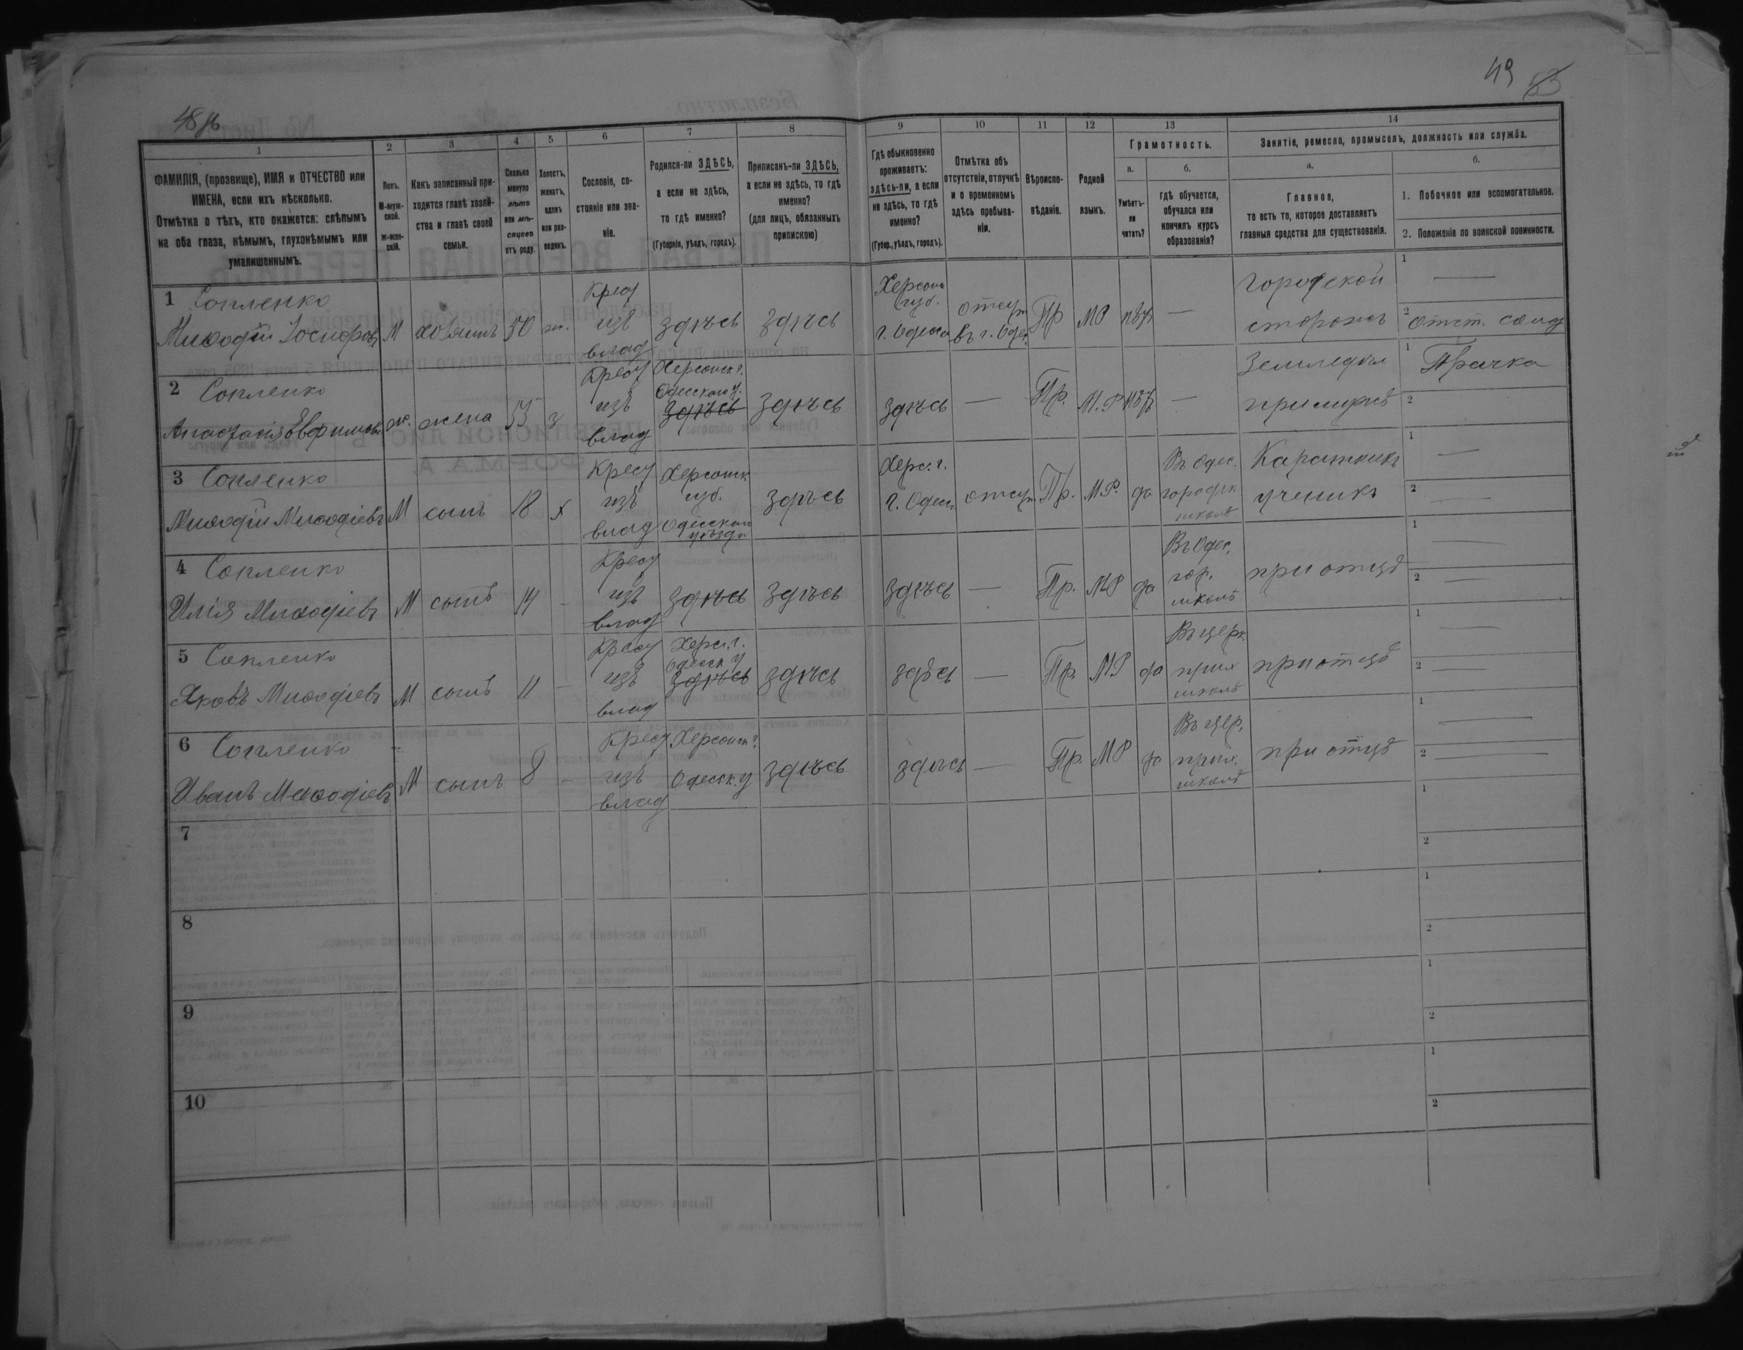 48 об
49 53
1 2 3 4 5 6 7 8 9 10 11 12 13 14
ФАМИЛІЯ, (прозвище), ИМЯ и ОТЧЕСТВО или
ИМЕНА, если ихъ нѣсколько.
Отмѣтка о тѣхъ, кто окажется: слѣпымъ
на оба глаза, нѣмымъ, глухонѣмымъ или
умалишеннымъ.
Полъ.
М-муж-
ской.
Ж-жен-
скій.
Какъ записанный при-
ходится главѣ хозяй-
ства и главѣ своей
семьи.
Сколько
минуло
лѣтъ
или мѣ-
сяцевъ
отъ роду.
Холостъ,
женатъ,
вдовъ
или раз-
веденъ.
Сословіе, со-
стояніе или зва-
ніе.
Родился-ли ЗДѢСЬ,
а если не здѣсь,
то гдѣ именно?
(Губернія, уѣздъ, городъ).
Приписанъ-ли ЗДѢСЬ,
а если не здѣсь, то гдѣ
именно?
(для лицъ, обязанныхъ
припискою)
Гдѣ обыкновенно
проживаетъ:
здѣсь-ли, а если
не здѣсь, то гдѣ
именно?
(Губер., уѣздъ, городъ).
Отмѣтка объ
отсутствіи, отлучкѣ
и о временномъ
здѣсь пребыва-
ніи.
Вѣроиспо-
вѣданіе.
Родной
языкъ.
Грамотность.
а.
Умѣетъ-
ли
читать?
б.
гдѣ обучается,
обучался или
кончилъ курсъ
образованія?
Занятіе, ремесло, промыселъ, должность или служба.
а.
Главное,
то есть то, которое доставляетъ
главныя средства для существованія.
б.
1. Побочное или вспомогательное.
2. Положеніе по воинской повинности.
1 Сопленко
Миѳодій Іосифовъ М хозяинъ 50 ж. Крест изъ влад здѣсь здѣсь Херсон губ. г. Одесса отсут въ г. Одес. Пр МР нѣтъ — Городской сторожъ 1 — 2 отст. солд
2 Сопленко
Анастасія Евфимова ж. жена 55 з Крест изъ влад Херсонск г. Одесского у. здѣсь здѣсь здѣсь — Пр. М.Р нѣтъ — Земледѣл при мужѣ 1 Прачка 2
3 Сопленко
Миѳодій Миѳодіевъ М сынъ 18 х Крест изъ влад Херсонск губ. Одесскаго уѣзда здѣсь Херс. г. г. Одесса отсут Пр. МР. да Въ Одес. городск школѣ ученикъ 1 — 2 —
4 Сопленко
Илія Миѳодіевъ М сынъ 14 - Крест изъ влад здѣсь здѣсь здѣсь — Пр. МР да Въ Одес. гор. школѣ при отцѣ 1 — 2 —
5 Сопленко
Яковъ Миѳодіевъ М сынъ 11 - Крест изъ влад Херс. г. Одесск у здѣсь здѣсь здѣсь — Пр. МР да Въ церк. прих школѣ при отцѣ 1 — 2 —
6 Сопленко
Иванъ Миѳодіевъ М сынъ 8 - Крест изъ влад Херсонск г. Одесск. у здѣсь здѣсь — Пр. МР да Въ цер. прих. школѣ при отцѣ 1 — 2 —
7 1 2
8 1 2
9 1 2
10 1 2